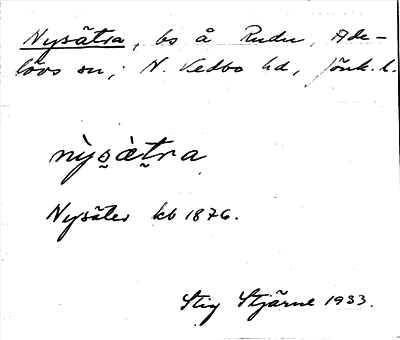 Nysätra, bs å Rudu, Ade-
lövs sn, N. Vedbo hd, Jönk. l.
nỳsæ̀tra
Nysäter kb 1876.
Stig Stjärne 1933.